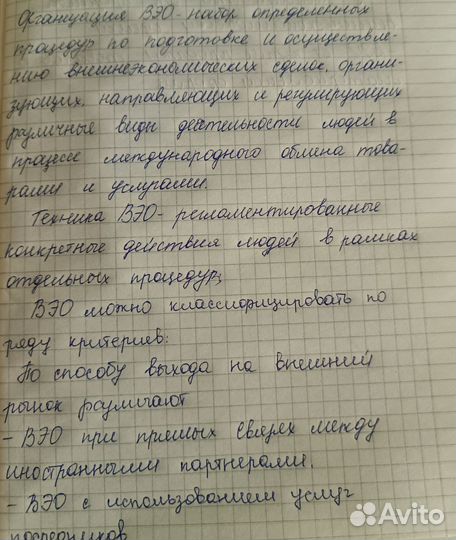 Организация ВЭО - набор определенных
процедур по подготовке и осуществле-
нию внешнеэкономических сделок, органи-
зующих, направляющих и регулирующих
различные виды деятельности людей в
процессе международного обмена това-
рами и услугами.
Техника ВЭО - регламентированные
конкретные действия людей в рамках
отдельных процедур;
ВЭО можно классифицировать по
ряду критериев:
По способу выхода на внешний
рынок различают
- ВЭО при прямых связях между
иностранными партнерами.
- ВЭО с использованием услуг
посредников
Avito